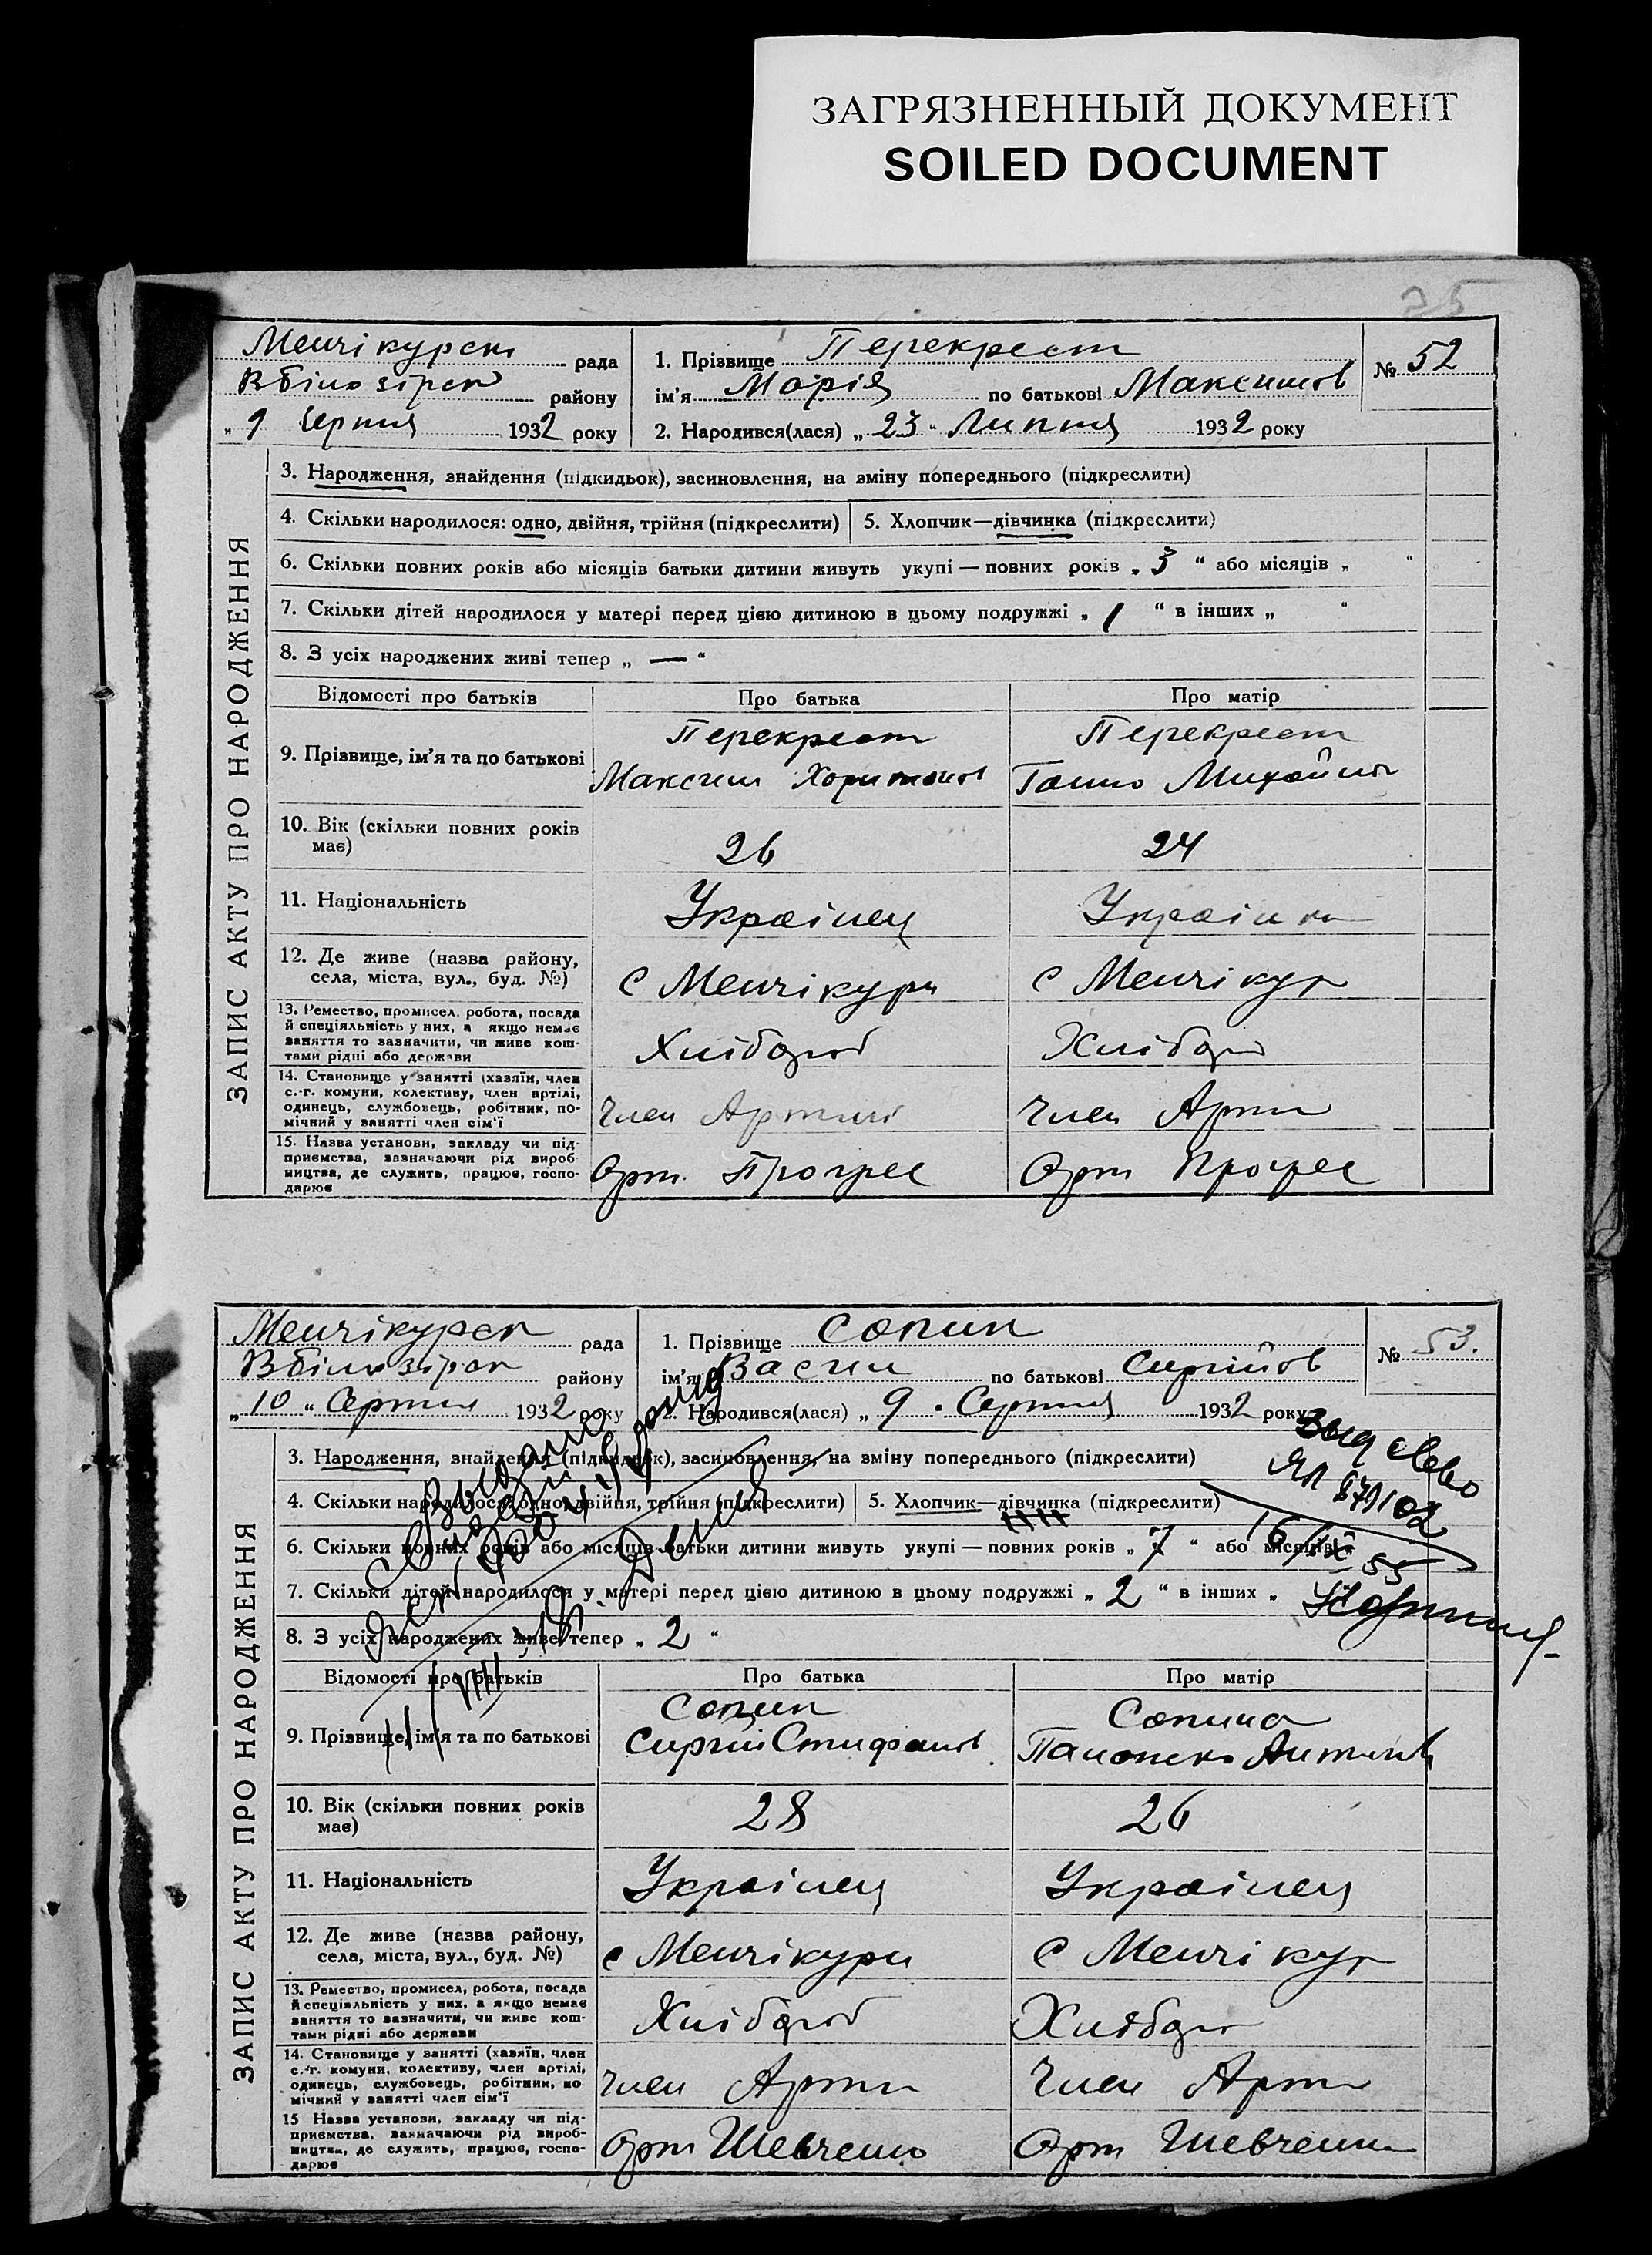 ЗАГРЯЗНЕННЫЙ ДОКУМЕНТ
SOILED DOCUMENT
25
Менчікурськ рада
Вбілозірськ району
„9 Серпня 1932 року
1. Прізвище Перекрест
ім’я Марія по батькові Максимов
2. Народився(лася) „23“ Липня 1932 року
№ 52
ЗАПИС АКТУ ПРО НАРОДЖЕННЯ
3. Народження, знайдення (підкидьок), засиновлення, на зміну попереднього (підкреслити)
4. Скільки народилося: одно, двійня, трійня (підкреслити)
5. Хлопчик—дівчинка (підкреслити)
6. Скільки повних років або місяців батьки дитини живуть укупі — повних років „3“ або місяців „ “
7. Скільки дітей народилося у матері перед цією дитиною в цьому подружжі „1“ в інших „ “
8. З усіх народжених живі тепер „—“
Відомості про батьків Про батька Про матір
9. Прізвище, ім’я та по батькові
Перекрест
Максим Харитонов
Перекрест
Ганна Михайлов
10. Вік (скільки повних років
має)
26 24
11. Національність Українец Українка
12. Де живе (назва району,
села, міста, вул., буд. №)
с Менчікури с Менчікур
13. Ремество, промисел, робота, посада
й спеціяльність у них, а якщо немає
заняття то зазначити, чи живе кош-
тами рідні або держави
Хлібороб Хлібороб
14. Становище у занятті (хазяїн, член
с.-г. комуни, колективу, член артілі,
одинець, службовець, робітник, по-
мічний у занятті член сім’ї
Член Артилі Член Арти
15. Назва установи, закладу чи під-
приємства, зазначаючи рід вироб-
ництва, де служить, працює, госпо-
дарює
Арт. Прогрес Арт Прогрес
Менчікурск рада
Вбілозірск району
„10“ Серпня 1932 року
1. Прізвище Сопин
ім’я Васил по батькові Сиргійов
2. Народився(лася) „9. Серпня 1932 року
№ 53.
ЗАПИС АКТУ ПРО НАРОДЖЕННЯ
3. Народження, знайдення (підкидьок), засиновлення, на зміну попереднього (підкреслити)
4. Скільки народилося: одно, двійня, трійня (підкреслити)
5. Хлопчик—дівчинка (підкреслити)
6. Скільки повних років або місяців батьки дитини живуть укупі — повних років „7“ або місяців „
7. Скільки дітей народилося у матері перед цією дитиною в цьому подружжі „2“ в інших „
8. З усіх народжених живе тепер „2“
Выд свво
ЯЛ
16/IX 55
Відомості про батьків Про батька Про матір
9. Прізвище, ім’я та по батькові
Сопин
Сиргій Стифанов
Сопина
10. Вік (скільки повних років
має)
28 26
11. Національність Українец Українец
12. Де живе (назва району,
села, міста, вул., буд. №)
с Менчікури с Менчікур
13. Ремество, промисел, робота, посада
й спеціяльність у них, а якщо немає
заняття то зазначити, чи живе кош-
тами рідні або держави
Хлібороб Хлібороб
14. Становище у занятті (хазяїн, член
с.-г. комуни, колективу, член артілі,
одинець, службовець, робітник, по-
мічний у занятті член сім’ї
Член Арти Член Арти
15 Назва установи, закладу чи під-
приємства, зазначаючи рід вироб-
ництва, де служить, працює, госпо-
дарює
Арт Шевченко Арт Шевченко